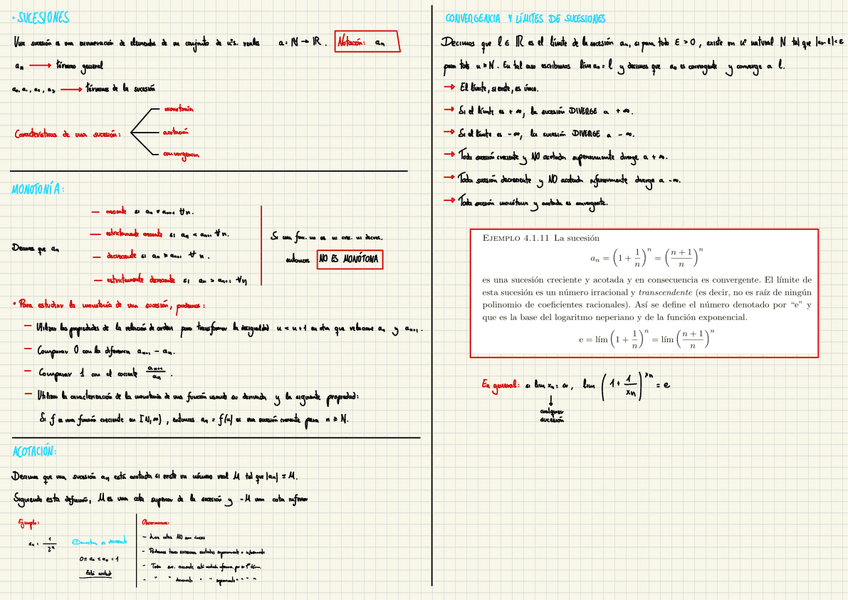 · SUCESIONES
Una sucesión es una enumeración de elementos de un conjunto de nºs. reales a: ℕ → ℝ. Notación: aₙ
aₙ → término general
a₀, a₁, a₂, a₃ → términos de la sucesión
monotonía
Características de una sucesión: acotación
convergencia
MONOTONÍA:
— creciente si aₙ ≤ aₙ₊₁ ∀n.
— estrictamente creciente si aₙ < aₙ₊₁ ∀n.
Decimos que aₙ
— decreciente si aₙ ≥ aₙ₊₁ ∀n.
— estrictamente decreciente si aₙ > aₙ₊₁ ∀n
Si una func. no es ni crec. ni decrec.
entonces NO ES MONÓTONA
• Para estudiar la monotonía de una sucesión, podemos:
— Utilizar las propiedades de la relación de orden para transformar la desigualdad n < n+1 en otra que relacione aₙ y aₙ₊₁.
— Comparar 0 con la diferencia aₙ₊₁ - aₙ.
— Comparar 1 con el cociente aₙ₊₁/aₙ.
— Utilizar la caracterización de la monotonía de una función usando su derivada y la siguiente propiedad:
Si f es una función creciente en [N,∞), entonces aₙ = f(n) es una sucesión creciente para n ≥ N.
ACOTACIÓN:
Decimos que una sucesión aₙ está acotada si existe un número real M tal que |aₙ| ≤ M.
Siguiendo esta definición, M es una cota superior de la sucesión y -M una cota inferior
Ejemplo:
aₙ = 1/2ⁿ
0 ≤ aₙ ≤ a₀ = 1
Está acotada
Observaciones:
- Las cotas NO son únicas
CONVERGENCIA Y LÍMITES DE SUCESIONES
Decimos que l ∈ ℝ es el límite de la sucesión aₙ, si para todo ε > 0, existe un nº natural N tal que |aₙ-l| < ε
para todo n ≥ N. En tal caso escribimos lim aₙ = l y decimos que aₙ es convergente y converge a l.
→ El límite, si existe, es único.
→ Si el límite es +∞, la sucesión DIVERGE a +∞.
→ Si el límite es -∞, la sucesión DIVERGE a -∞.
→ Toda sucesión creciente y NO acotada superiormente diverge a +∞.
→ Toda sucesión decreciente y NO acotada inferiormente diverge a -∞.
→ Toda sucesión monótona y acotada es convergente.
EJEMPLO 4.1.11 La sucesión
aₙ = (1 + 1/n)ⁿ = ((n+1)/n)ⁿ
es una sucesión creciente y acotada y en consecuencia es convergente. El límite de
esta sucesión es un número irracional y transcendente (es decir, no es raíz de ningún
polinomio de coeficientes racionales). Así se define el número denotado por “e” y
que es la base del logaritmo neperiano y de la función exponencial.
e = lím (1 + 1/n)ⁿ = lím ((n+1)/n)ⁿ
En general: si lim xₙ = ∞, lim (1 + 1/xₙ)^xₙ = e
cualquier
sucesión